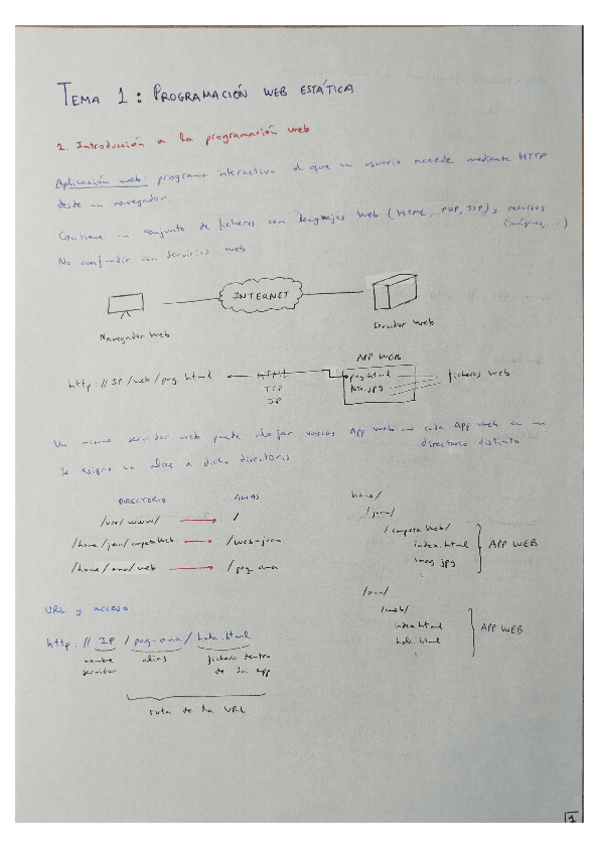 TEMA 1: PROGRAMACIÓN WEB ESTÁTICA
1. Introducción a la programación web
Aplicación web: programa interactivo al que un usuario accede mediante HTTP
desde un navegador.
Contiene un conjunto de ficheros con lenguajes Web (HTML, PHP, JSP) y recursos
(imágenes, ...)
No confundir con servicios web
INTERNET
Navegador Web
Servidor Web
APP WEB
http://IP/web/pag.html
HTML
pag.html
ficheros web
TCP
foto.jpg
IP
Un mismo servidor web puede alojar varias App Web cada App Web en un
directorio distinto
Se asigna un alias a dicho directorio
DIRECTORIO
ALIAS
/var/www/
/
/home/juan/carpetaWeb
/web-juan
/home/ana/web
/pag-ana
home/
/juan/
/carpetaWeb/
index.html
imag.jpg
APP WEB
/ana/
/web/
index.html
hola.html
APP WEB
URL y acceso
http://IP/pag-ana/hola.html
nombre servidor
alias
fichero dentro de la app
ruta de la URL
1